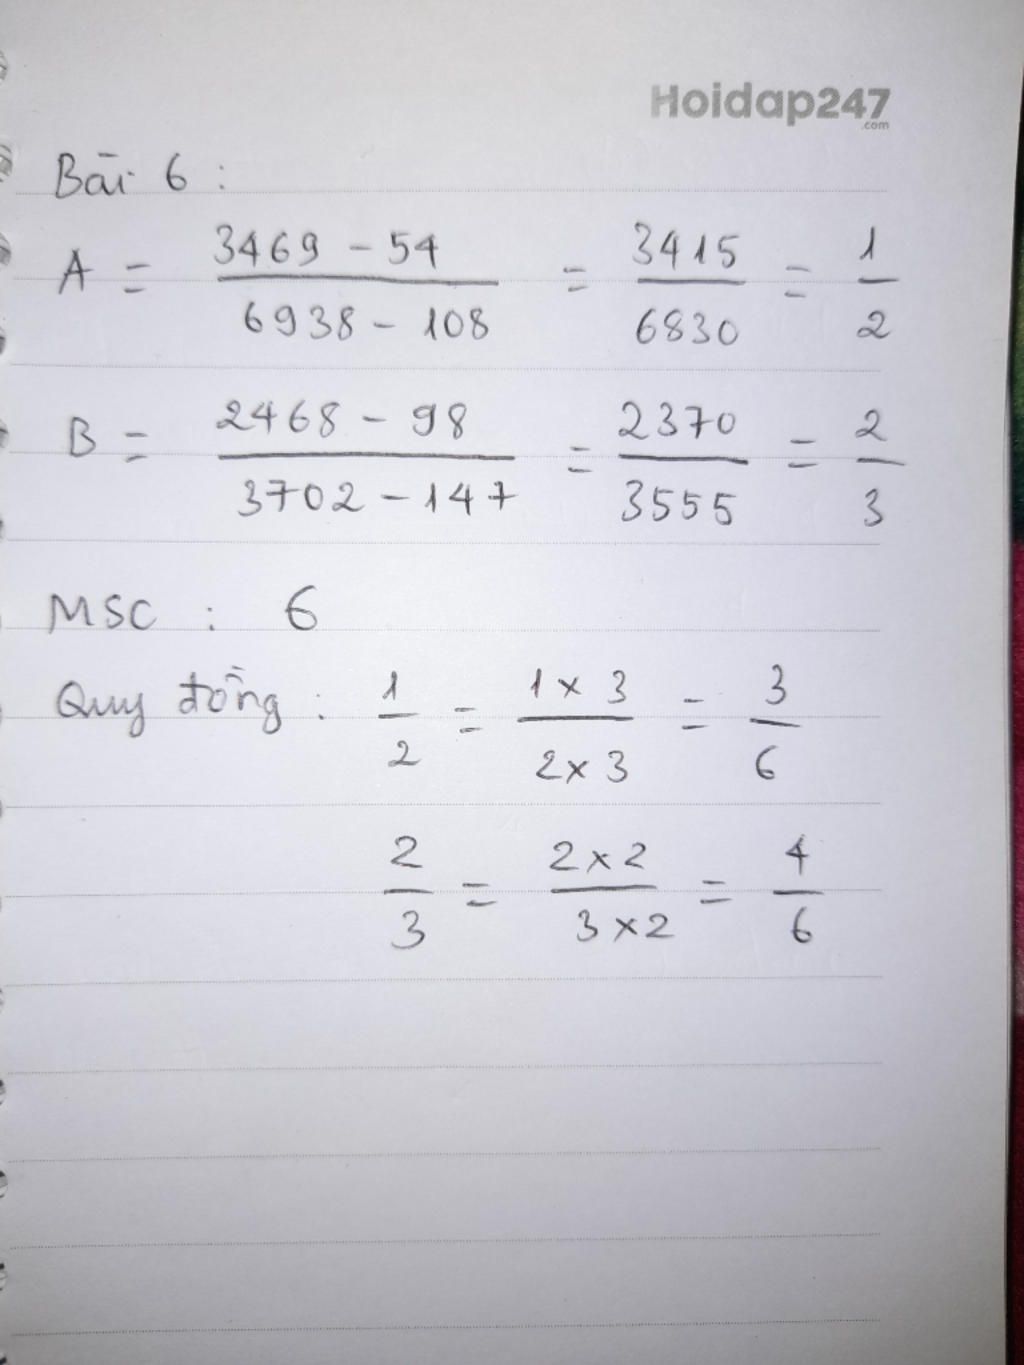 Hoidap247
.com
Bài 6 :
A = (3469 - 54)/(6938 - 108) = 3415/6830 = 1/2
B = (2468 - 98)/(3702 - 147) = 2370/3555 = 2/3
MSC : 6
Quy đồng : 1/2 = (1 x 3)/(2 x 3) = 3/6
2/3 = (2 x 2)/(3 x 2) = 4/6